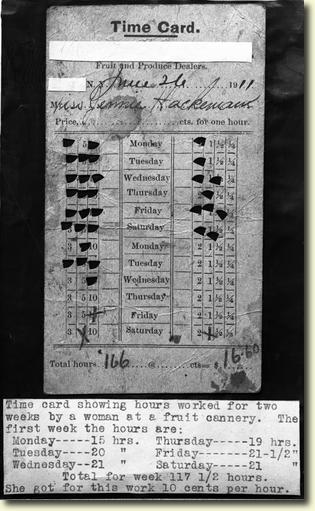 Time Card.
Fruit and Produce Dealers.
N. June 26 1911
Miss Jennie Hackemann
Price, cts. for one hour.
5 Monday 1 ½ ¼
Tuesday 1 ½ ¼
Wednesday ½ ¼
Thursday ½ ¼
Friday ½ ¼
Saturday ½ ¼
3 5 10 Monday 2 1 ½ ¼
Tuesday 2 1 ½ ¼
3 5 Wednesday 2 1 ½ ¼
3 5 10 Thursday 2 1 ½ ¼
3 5 Friday 2 1 ½ ¼
3 10 Saturday 2 ½ ¼
Total hours 166 @ cts= $ 16.60
Time card showing hours worked for two
weeks by a woman at a fruit cannery. The
first week the hours are:
Monday-----15 hrs. Thursday-----19 hrs.
Tuesday----20 " Friday-------21-1/2"
Wednesday--21 " Saturday-----21 "
Total for week 117 1/2 hours.
She got for this work 10 cents per hour.